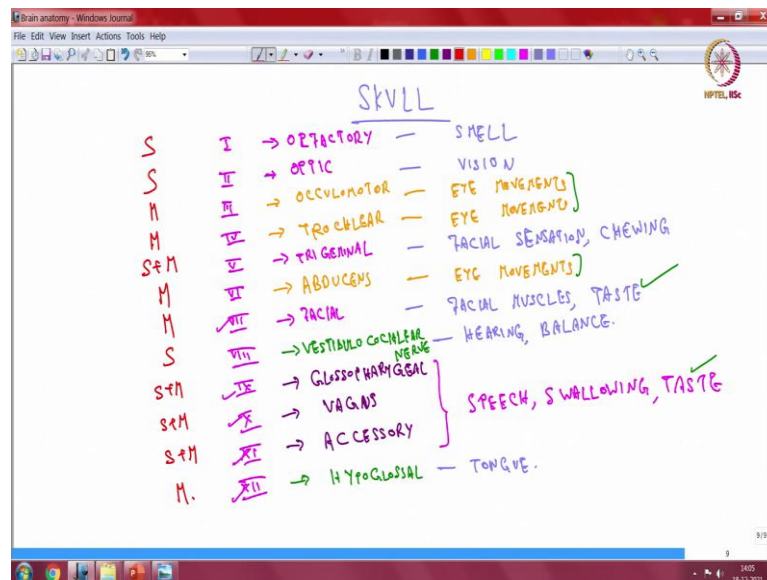 Brain anatomy - Windows Journal
File Edit View Insert Actions Tools Help
96%
NPTEL, IISc
SKULL
S I → OLFACTORY — SMELL
S II → OPTIC — VISION
M III → OCCULOMOTOR — EYE MOVEMENTS
M IV → TROCHLEAR — EYE MOVEMENTS
S+M V → TRIGEMINAL — FACIAL SENSATION, CHEWING
M VI → ABDUCENS — EYE MOVEMENTS
M VII → FACIAL — FACIAL MUSCLES, TASTE ✓
S VIII → VESTIBULO COCHLEAR NERVE — HEARING, BALANCE.
S+M IX → GLOSSOPHARYGEAL
S+M X → VAGUS
SPEECH, SWALLOWING, TASTE ✓
S+M XI → ACCESSORY
M. XII → HYPOGLOSSAL — TONGUE.
9/9
9
14:05
18-12-2021